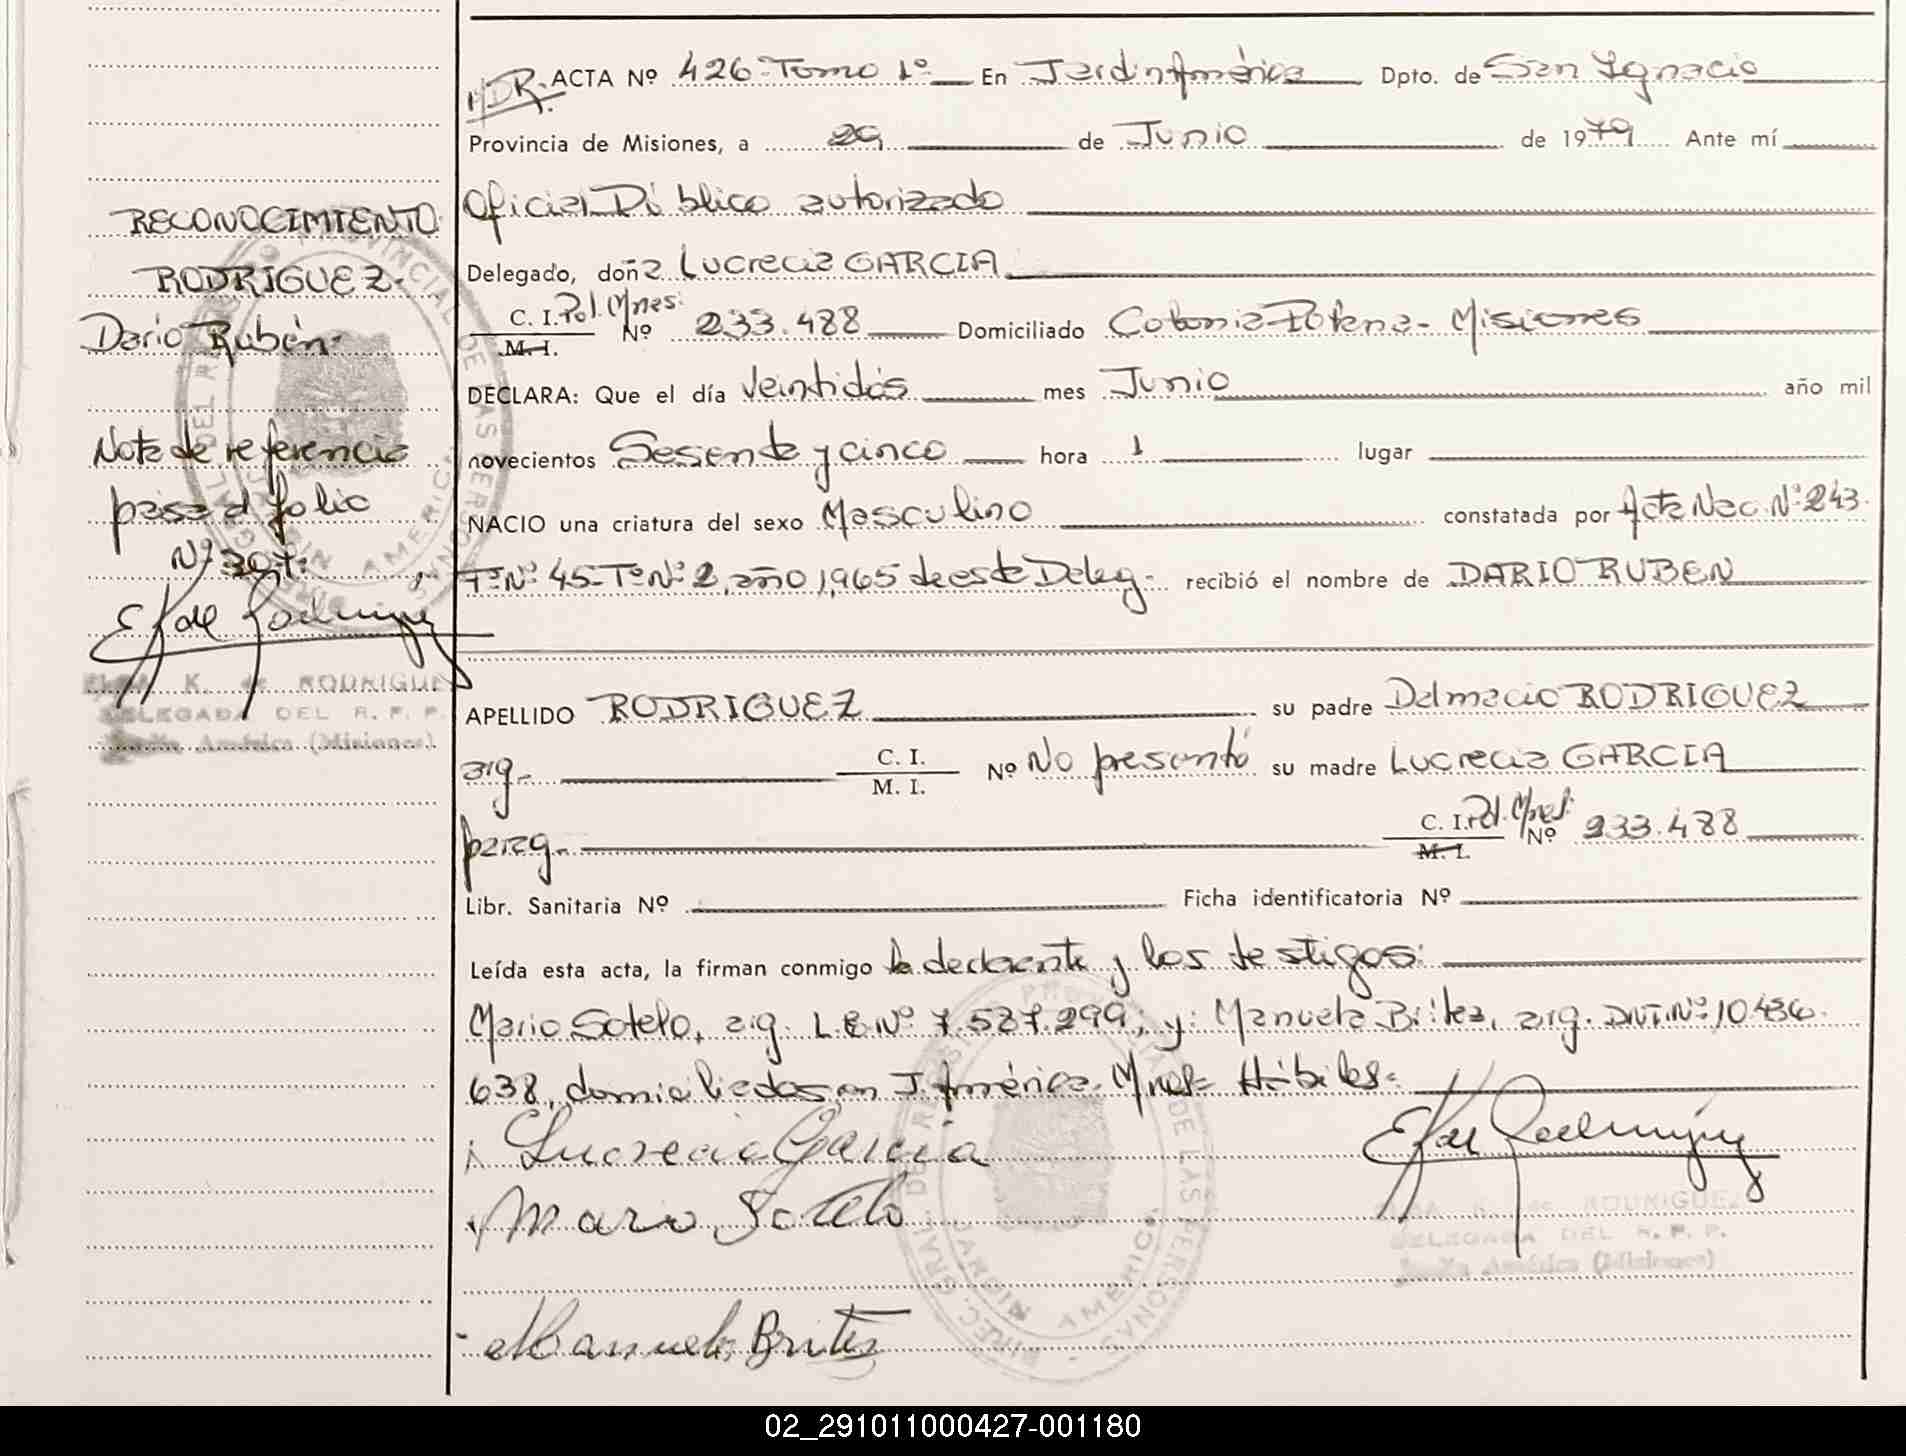 RECONOCIMIENTO
RODRIGUEZ-
Dario Rubén-
Nota de referencia
pasa al folio
Nº 307.
ELSA K. de RODRIGUEZ
DELEGADA DEL R. P. P.
Jardín América (Misiones)
ACTA Nº 426-Tomo 1º En Jardin América Dpto. de San Ignacio
Provincia de Misiones, a 29 de Junio de 1979 Ante mí
Oficial Público autorizado
Delegado, doña Lucrecia GARCIA
C. I. Pol. Mnes. Nº 233.488 Domiciliado Colonia Polana- Misiones
M. I.
DECLARA: Que el día veintidós mes Junio año mil
novecientos Sesenta y cinco hora 1 lugar
NACIO una criatura del sexo Masculino constatada por Acta Nac. Nº 243.
Fº Nº 45-Tº Nº 2, año 1,965 de esta Deleg. recibió el nombre de DARIO RUBEN
APELLIDO RODRIGUEZ su padre Dalmacio RODRIGUEZ
arg- C. I. M. I. Nº No presentó su madre Lucrecia GARCIA
parag- C. I. Pol. Mnes. M. I. Nº 233.488
Libr. Sanitaria Nº Ficha identificatoria Nº
Leída esta acta, la firman conmigo la declarante y los testigos:
Mario Sotelo, arg. L.E. Nº 7.527.299; y: Manuela Britez, arg. DNI. Nº 10.436.
638, domiciliados en J. América. Mnes- Hábiles-
Lucrecia Garcia
Mario Sotelo
Manuela Britez
ELSA K. de RODRIGUEZ
DELEGADA DEL R. P. P.
Jardín América (Misiones)
DIREC. GRAL. DEL REGISTRO PROVINCIAL DE LAS PERSONAS
JARDIN AMERICA
02_291011000427-001180